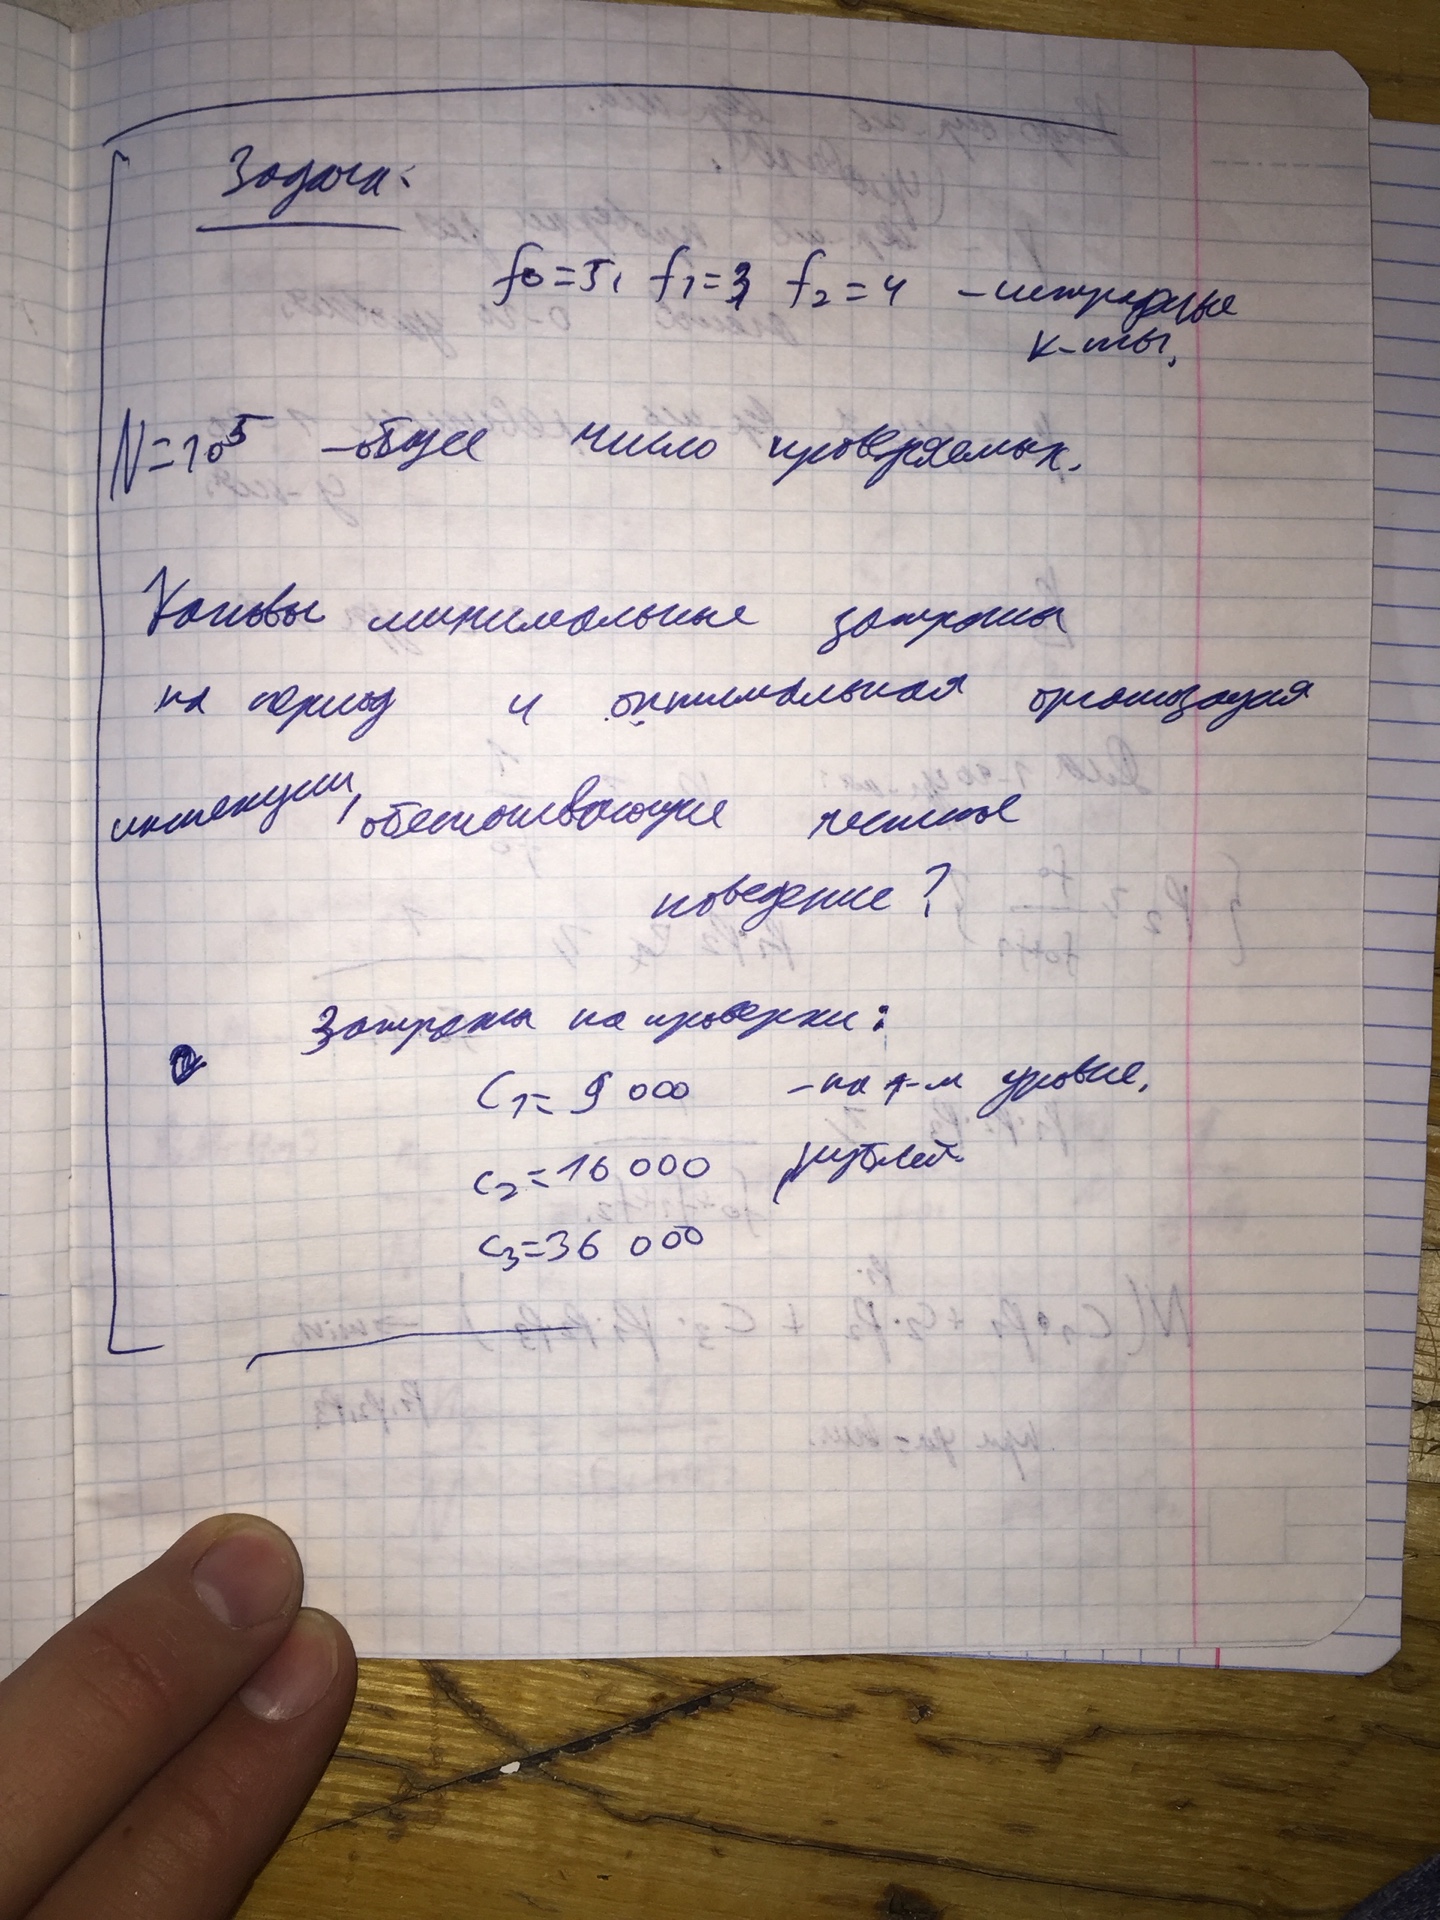 Задача:
f0 = 5, f1 = 3, f2 = 4 – штрафные
к-ты.
N = 10^5 – общее число проверяемых.
Каковы минимальные затраты
на период и оптимальная организация
инспекции, обеспечивающие честное
поведение?
Затраты на проверки:
C1 = 9 000 – на 1-м уровне,
C2 = 16 000 рублей.
C3 = 36 000